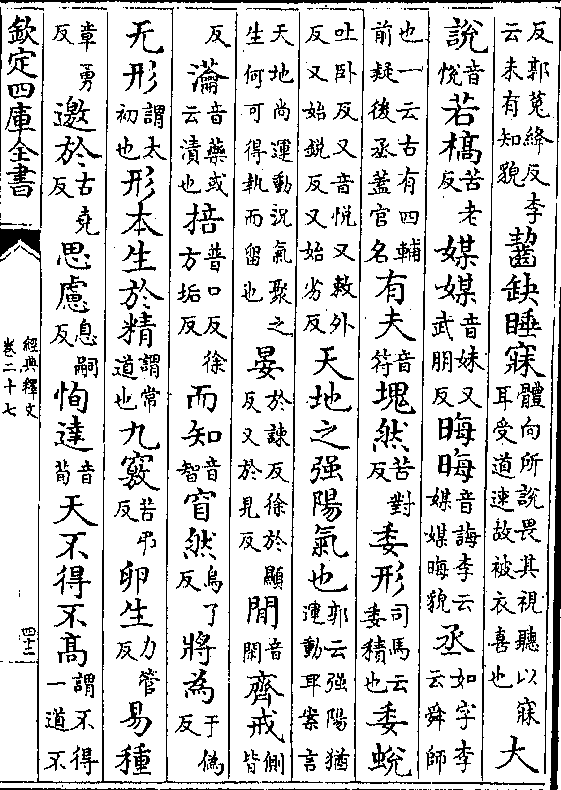 反郭莵絳反李云未有知貌齧缺睡寐體向所說畏其視聽以寐耳受道速故被衣喜也大
說音悅若槁苦老反媒媒音妹又武朋反晦晦音誨李云媒媒晦貌丞如字李云舜師
也一云古有四輔前疑後丞蓋官名有夫音符塊然苦對反委形司馬云委積也委蛻
吐卧反又音悅又敕外反又始銳反又始劣反天地之强陽氣也郭云强陽猶運動耳案言
天地尚運動況氣聚之生何可得執而留也晏於諫反徐於顯反又於見反閒音閑齊戒側皆
反瀹音藥或云漬也掊普口反徐方垢反而知音智窅然烏了反將為于偽反
无形謂太初也形本生於精謂常道也九竅苦弔反卵生力管反易種
章勇反邀於古堯反思慮息嗣反恂達音荀天不得不髙謂不得一道不
欽定四庫全書
經典釋文
卷二十七
四十二